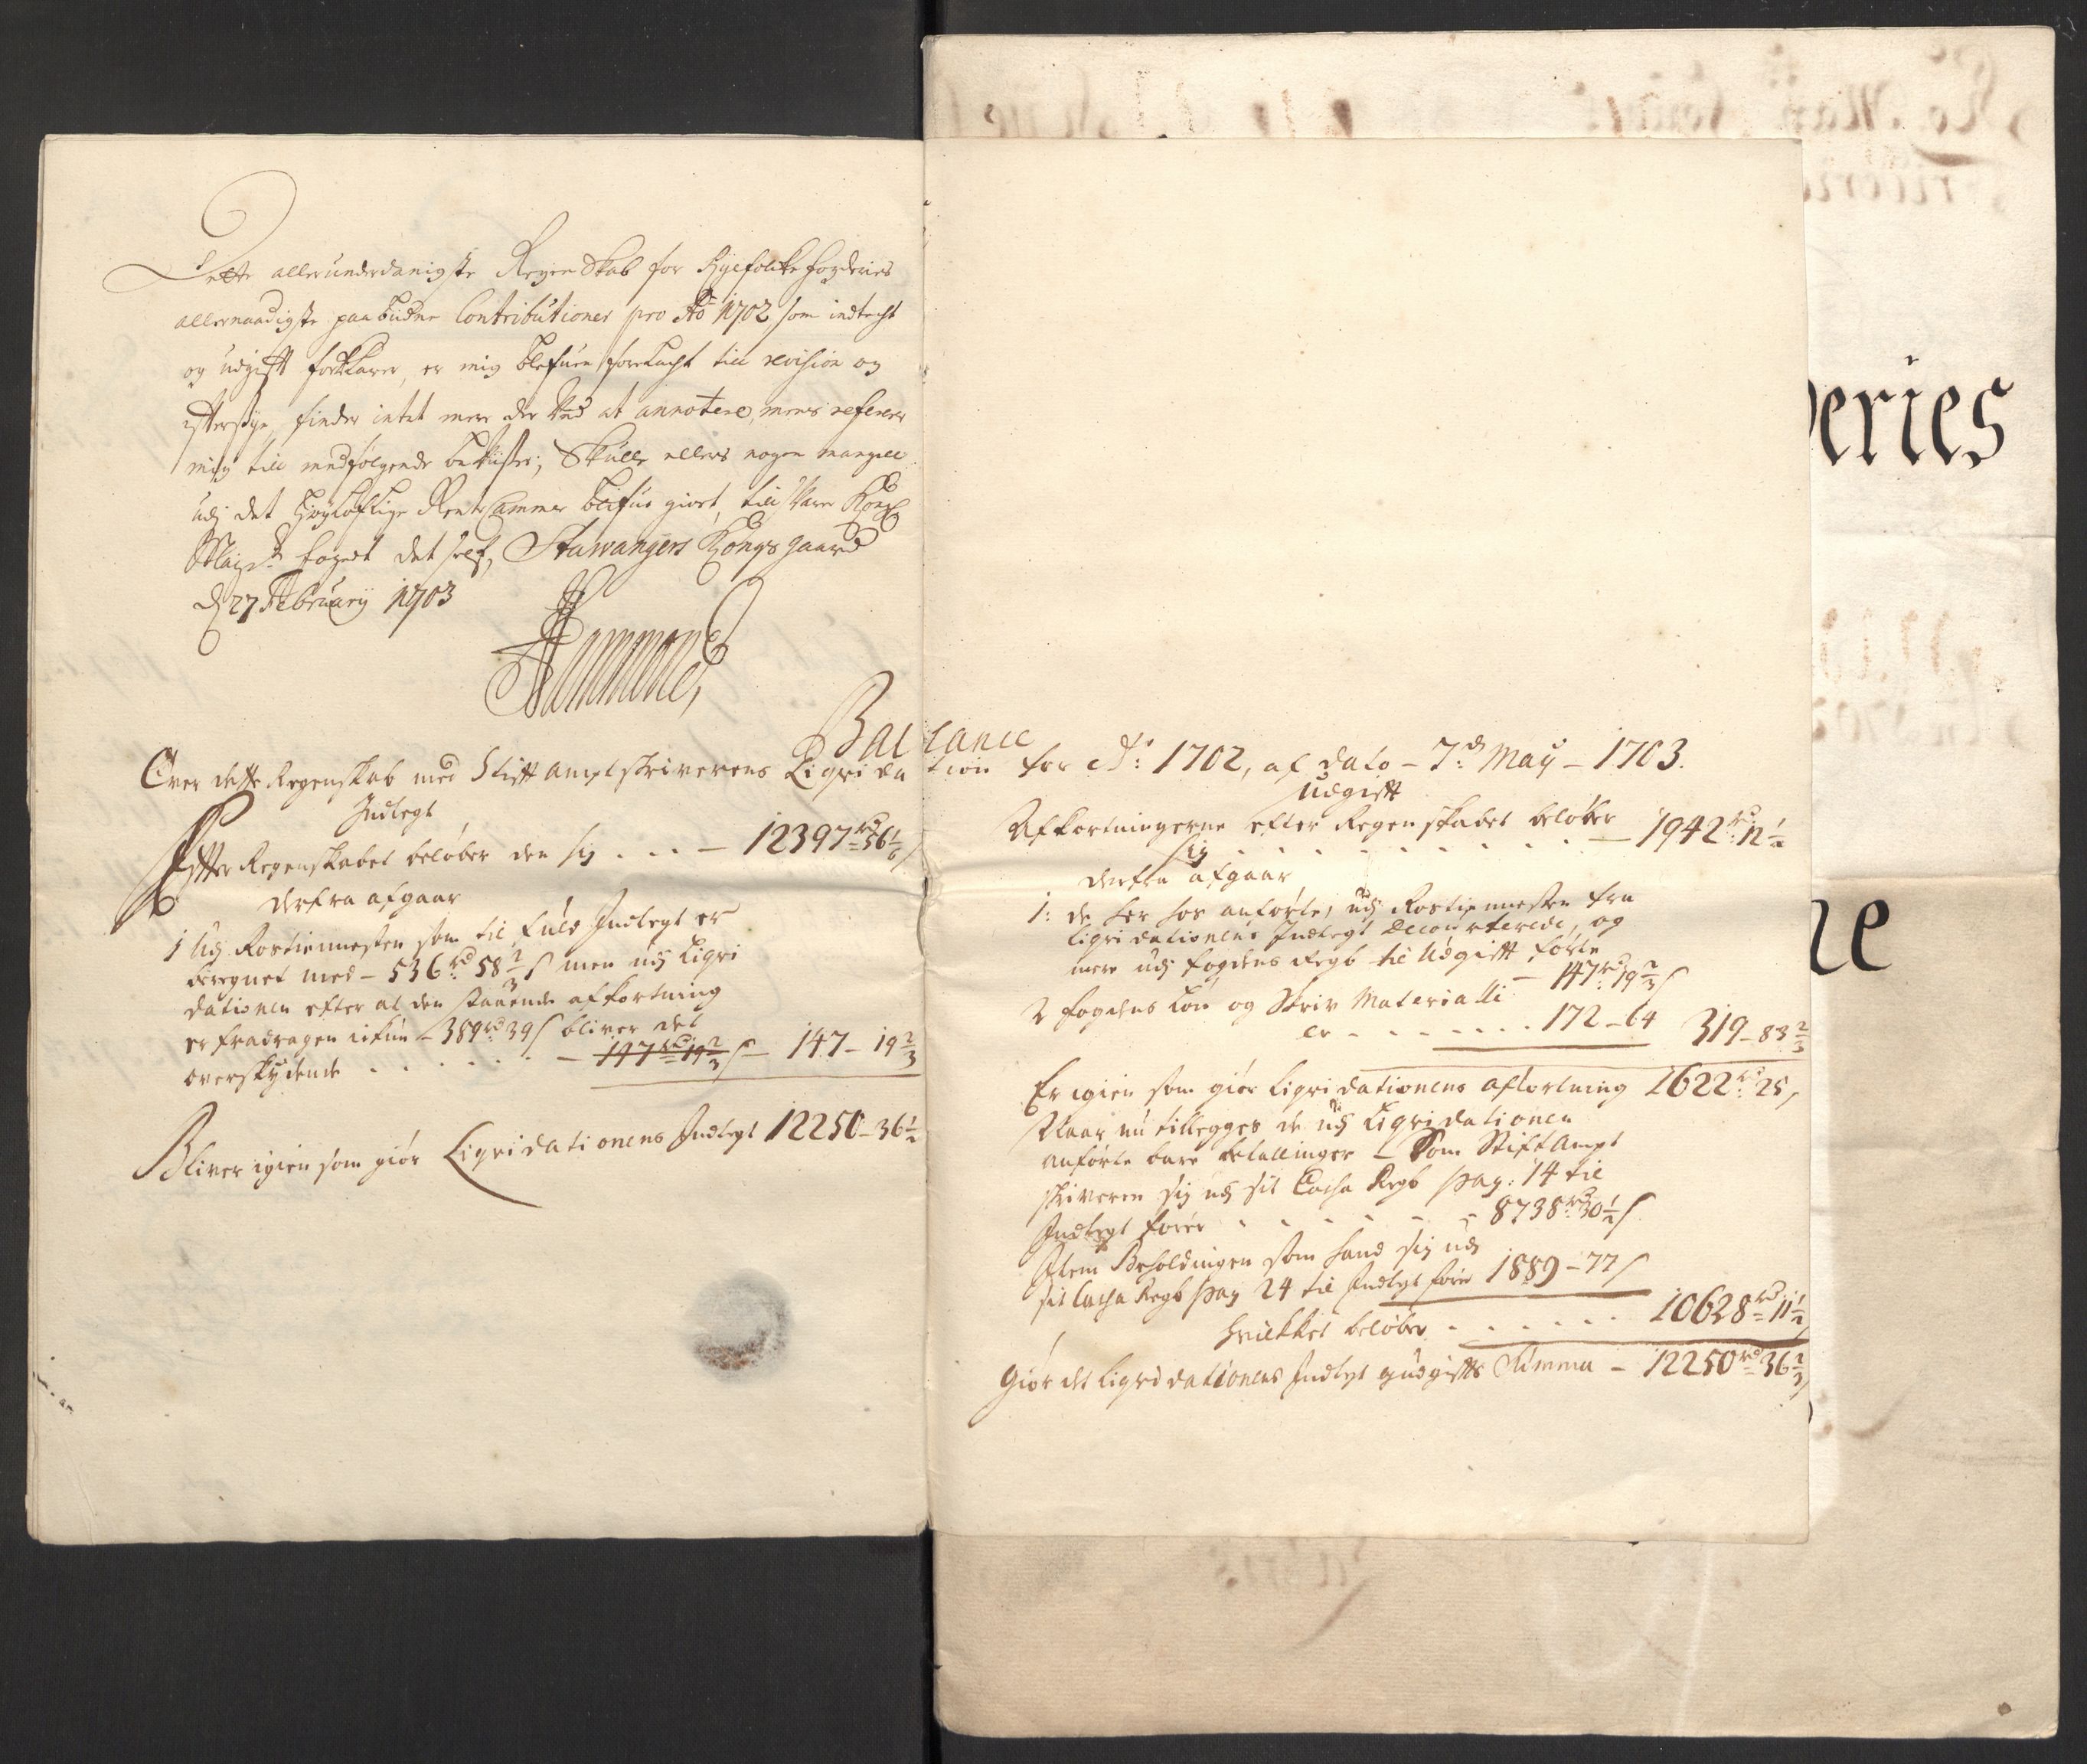 Dette allerunderdanigste Regenskab for Ryefolcke fogderies
allernaadigste paabudne Contributioner pro Ao 1702, som indtecht
og udgifft forklarer, er mig blefuen forelagt till revision og
effterseje, finder intet mere der ved at annotere, mens referer
mig till medfølgende beviiser; Skulle ellers nogen mangell
udj det Høyloflige Rente Cammer blifue giort, till svarer Kongl
Maysts foged det self, Stawangers Kongsgaard
d 27 Februarij 1703
Hammond
Ballance
Over dette Regenskab med Stifft amptskriverens Liqvidation for Ao: 1702, af dato - 7de May - 1703.
Indtegt
Effter Regenskabet beløber den sig . . . — 12397 rd 56 1/6 s
derfra afgaar
1 Udj Rostiennesten som til fuld Indtegt er
beregnet med - 536 rd 58 2/3 s men udj Liqvi
dationen efter at den staaende afkortning
er fradragen ickun - 389 rd 39 s bliver det
overskydende . . . . . . — 147 rd 19 2/3 s — 147 - 19 2/3
Bliver igien som giør Liqvidationens Indtegt 12250 - 36 1/2
Udgifft
Afkortningerne efter Regenskabet beløber
sig . . . . . . . . . — 1942 rd 12 1/2
derfra afgaar
1: de her hos anførte, udj Rostiennesten fra
Liqvidationens Indtegt decourterede, og
mere udj fogdens Regb til Udgifft førte
— 147 rd 19 2/3 s
2 fogdens Løn og Skriv Materialli
er - - - - - - - 172 - 64 319 - 83 2/3
Er igien som giør Liqvidationens afkortning 1622 rd 25 s
Naar nu tillegges de udj Liqvidationen
anførte bare betallinger - Som Stift Ampt
skriveren sig udj sit Cassa Regb pag: 14 til
Indtegt fører . . . . . . - 8738 rd 30 1/2 s
Item Beholdingen som hand sig udj
sit Cassa Regb pag 24 til Indtegt fører 1889 - 77 s
hvilkket beløber . . . . . . 10628 rd 11 1/2
Giør det Liqvidationens Indtegt og udgiffts Summa - 12250 rd 36 1/2 s
eries